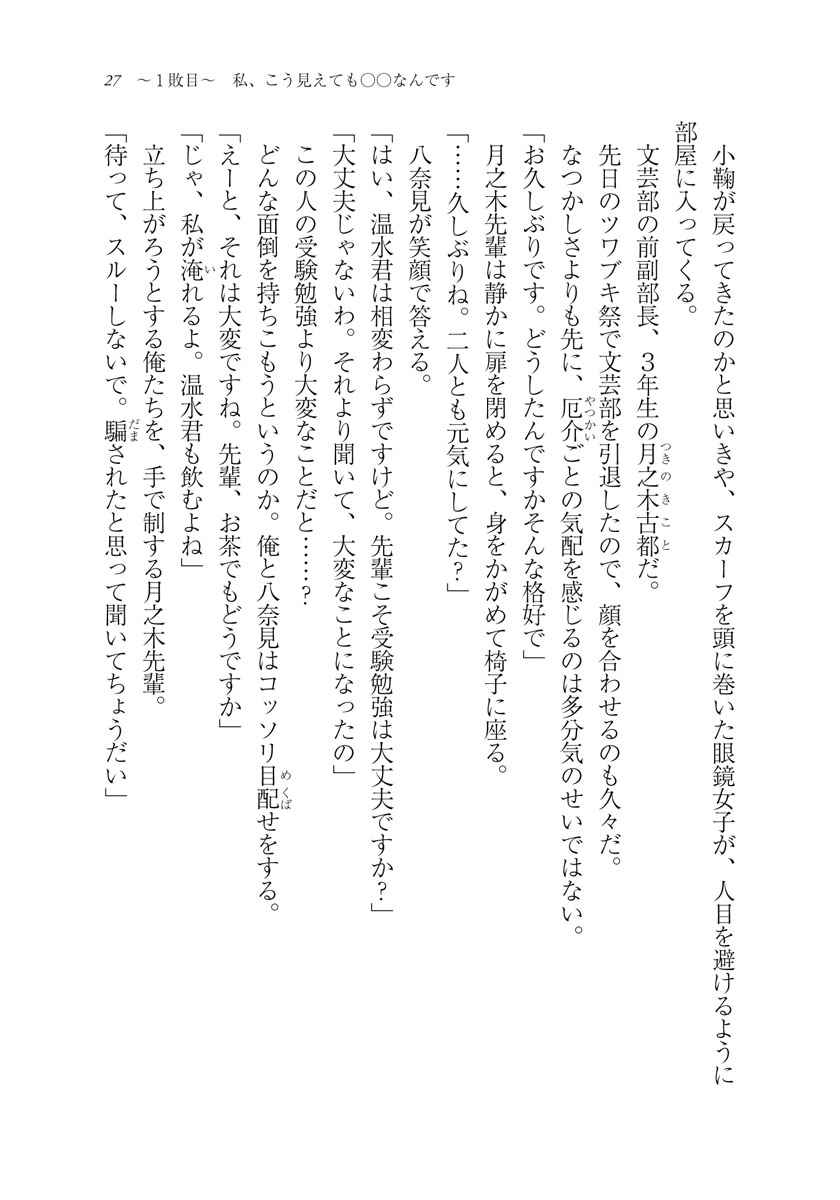 27　～１敗目～　私、こう見えても○○なんです
　小鞠が戻ってきたのかと思いきや、スカーフを頭に巻いた眼鏡女子が、人目を避けるように
部屋に入ってくる。
　文芸部の前副部長、３年生の月之木古都だ。
　先日のツワブキ祭で文芸部を引退したので、顔を合わせるのも久々だ。
　なつかしさよりも先に、厄介ごとの気配を感じるのは多分気のせいではない。
「お久しぶりです。どうしたんですかそんな格好で」
　月之木先輩は静かに扉を閉めると、身をかがめて椅子に座る。
「……久しぶりね。二人とも元気にしてた？」
　八奈見が笑顔で答える。
「はい、温水君は相変わらずですけど。先輩こそ受験勉強は大丈夫ですか？」
「大丈夫じゃないわ。それより聞いて、大変なことになったの」
　この人の受験勉強より大変なことだと……？
　どんな面倒を持ちこもうというのか。俺と八奈見はコッソリ目配せをする。
「えーと、それは大変ですね。先輩、お茶でもどうですか」
「じゃ、私が淹れるよ。温水君も飲むよね」
　立ち上がろうとする俺たちを、手で制する月之木先輩。
「待って、スルーしないで。騙されたと思って聞いてちょうだい」